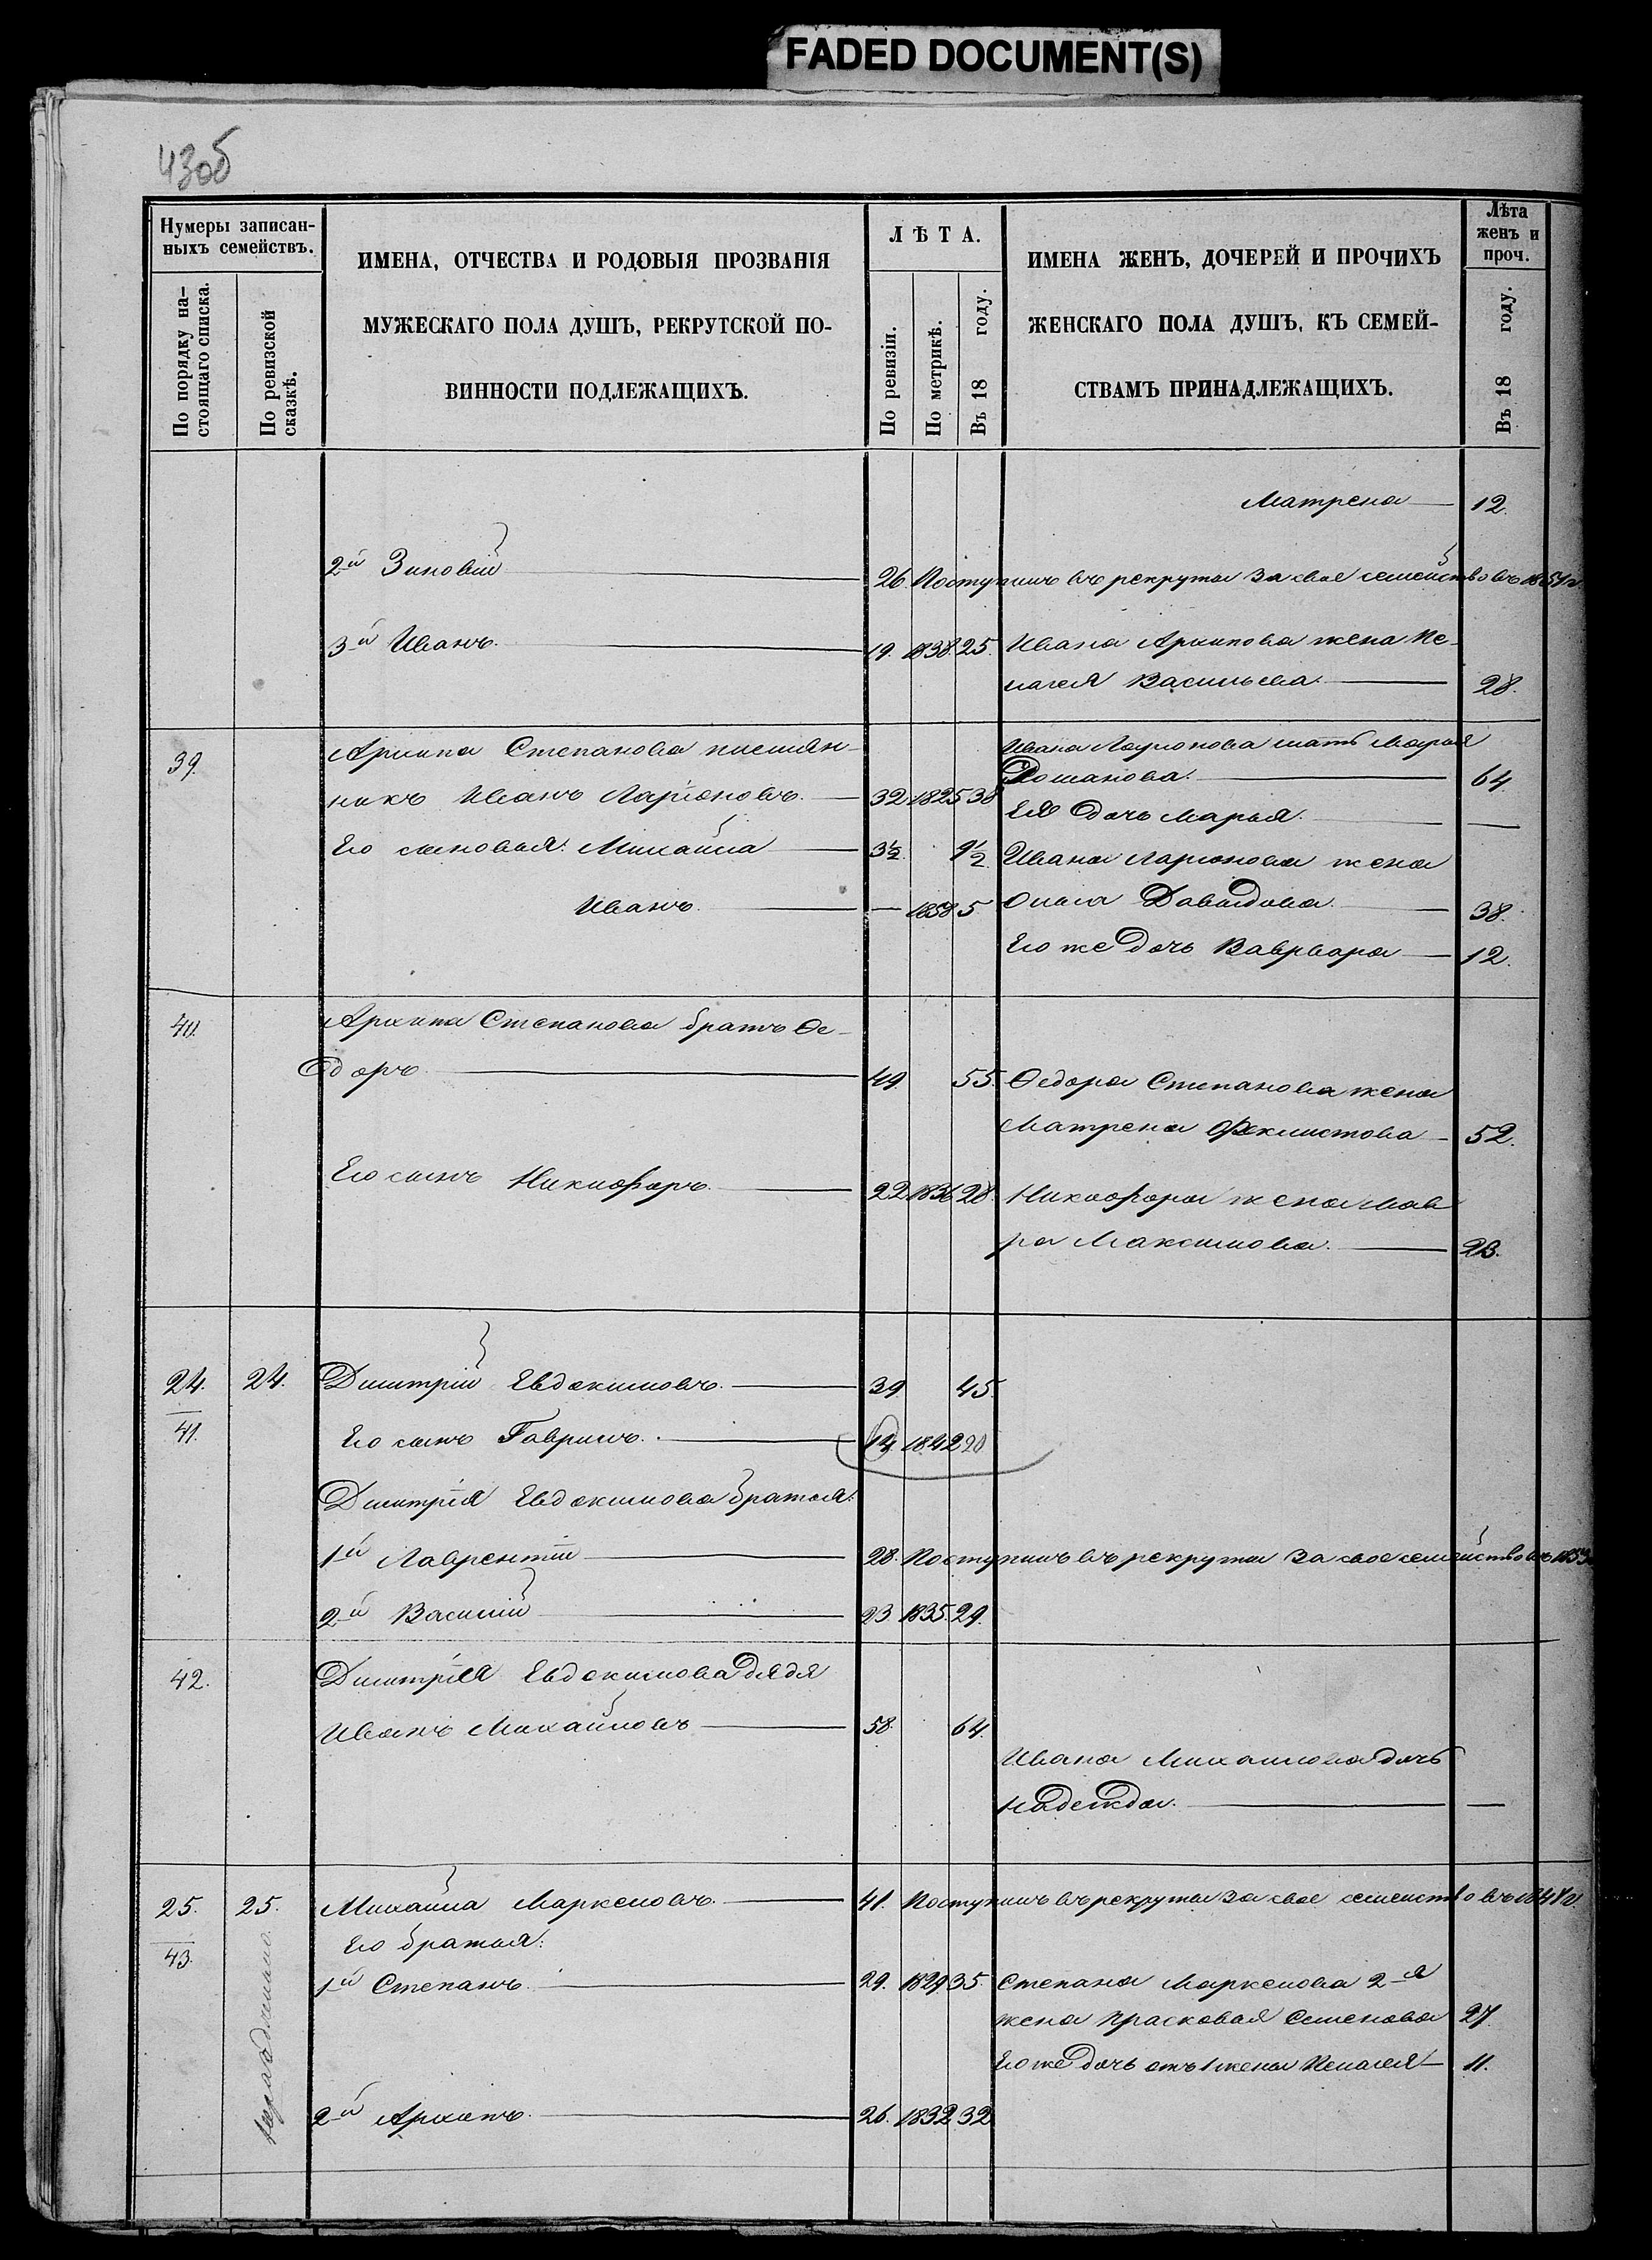 FADED DOCUMENT(S)
43об
Нумеры записан-
ныхъ семействъ.
По порядку на-
стоящаго списка.
По ревизской
сказкѣ.
ИМЕНА, ОТЧЕСТВА И РОДОВЫЯ ПРОЗВАНІЯ
МУЖЕСКАГО ПОЛА ДУШЪ, РЕКРУТСКОЙ ПО-
ВИННОСТИ ПОДЛЕЖАЩИХЪ.
ЛѢТА.
По ревизіи.
По метрикѣ.
Въ 18 году.
ИМЕНА ЖЕНЪ, ДОЧЕРЕЙ И ПРОЧИХЪ
ЖЕНСКАГО ПОЛА ДУШЪ, КЪ СЕМЕЙ-
СТВАМЪ ПРИНАДЛЕЖАЩИХЪ.
Лѣта
женъ и
проч.
Въ 18 году.
Матрена 12.
2й Зиновій 26. Поступилъ въ рекруты за свое семейство въ 1854 г.
3й Иванъ. 19. 1838. 25. Ивана Архипова жена Пе-
лагея Васильева. 28.
39. Архипа Степанова племян-
никъ Иванъ Ларіоновъ. 32 1825 38
Ивана Ларионова мать Марья
Романова. 64
Ея дочь Марья. —
Его сыновья: Михайла 3½. 9½ Ивана Ларионова жена
Иванъ. — 1858 5 Онна Давыдова. 38.
Его же дочь Варвара 12.
40. Архипа Степанова братъ Ѳе-
доръ 49 55. Ѳедора Степанова жена
Матрена Феклистова 52.
Его сынъ Никифоръ. 22. 1836 28. Никифора жена Мав
ра Максимова. 23.
24. 24. Дмитрій Евдокимовъ. 39 45.
41. Его сынъ Гаврилъ. 14. 1842 20
Дмитрія Евдокимова братья:
1й Лаврентій 28. Поступилъ въ рекруты за свое семейство въ 1853
2й Василій 23 1835. 29.
42. Дмитрія Евдокимова дядя
Иванъ Михайловъ 58. 64.
Ивана Михаилова дочь
Надежда. —
25. 25. Михайла Маркеловъ. 41. Поступилъ въ рекруты за свое семейство въ 1848 г.
43. Его братья:
1й Степанъ. 29. 1829 35. Степана Маркелова 2-я
жена Прасковья Семенова 27
Его же дочь отъ 1 жены Пелагея 11.
2й Архипъ. 26. 1832 32